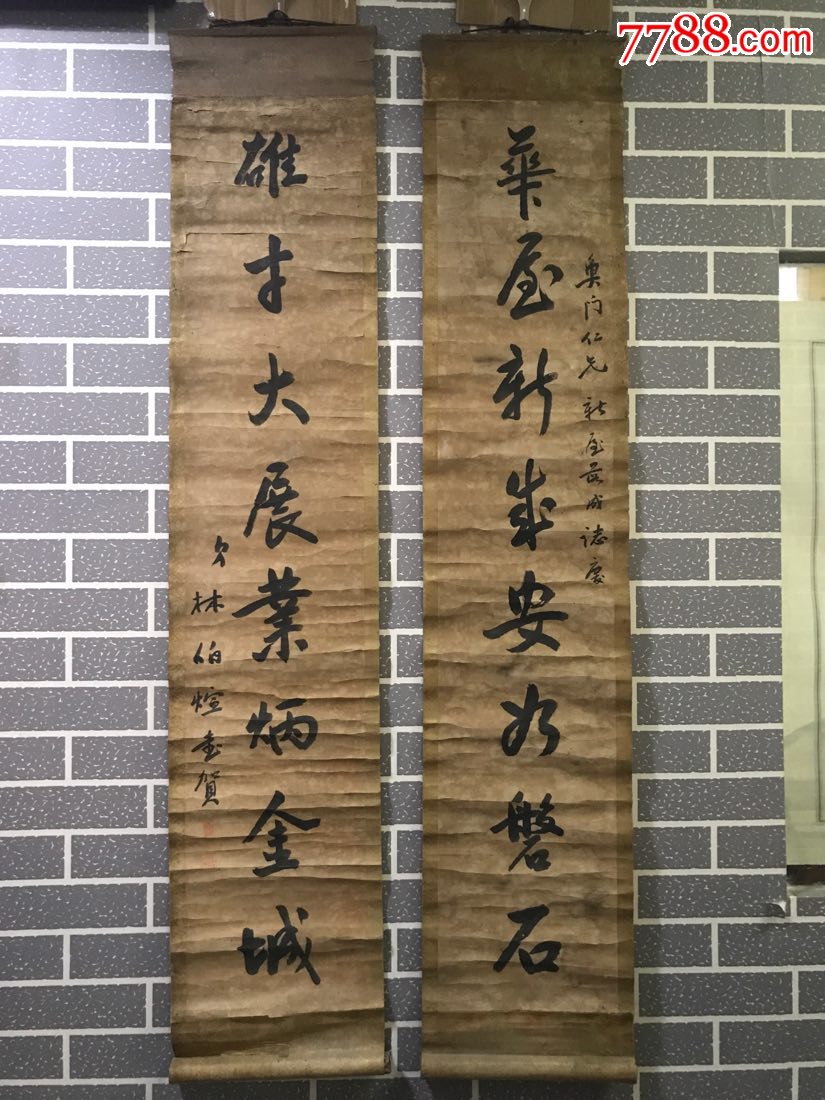 7788.com
華屋新成安如磐石
奧门仁兄 新屋落成誌慶
雄才大展業炳金城
弟林伯煊書賀